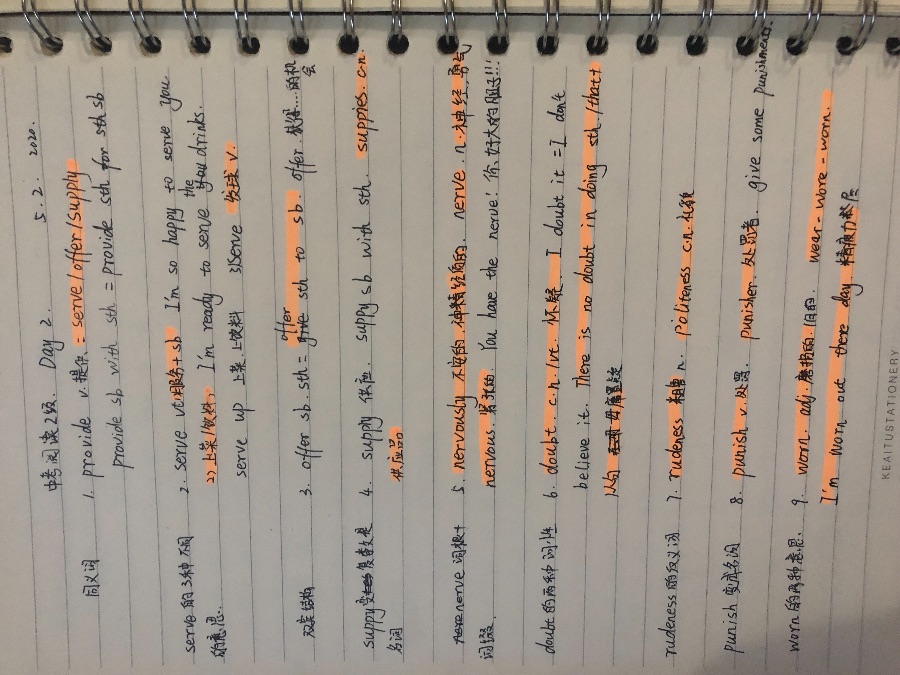 中考阅读2级. Day 2. 5.2. 2020.
同义词 1. provide v.提供. = serve/offer/supply
provide sb with sth = provide sth for sth sb
serve的3种不同的意思... 2. serve vt.服务+sb I'm so happy to serve you
2) 上菜/饮料; I'm ready to serve the you drinks.
serve up 上菜.上饮料 3)serve 发球 v.
双宾结构 3. offer sb. sth = offer give sth to sb. offer 获得...的机会
suppy 变复数是名词 4. suppy 供应. suppy sb with sth. suppies. c.n.
供应品
nerve 词根+词缀 5. nervously 不安的.神经质的. nerve n.神经 勇气
nervous.紧张的 You have the nerve! 你.好大的胆子!!!
doubt的两种词性 6. doubt. c.n./vt. 怀疑. I doubt it = I don't
believe it. There is no doubt in doing sth./that+
从句
rudeness的反义词 7. rudeness 粗鲁 n. politeness c.n.礼貌
punish变成名词 8. punish v.处罚. punisher.处罚者. give some punishment.
worn的两种意思. 9. worn. adj.磨损的.旧的. wear-wore-worn.
I'm worn out there day. 精疲力尽
KEAITUSTATIONERY